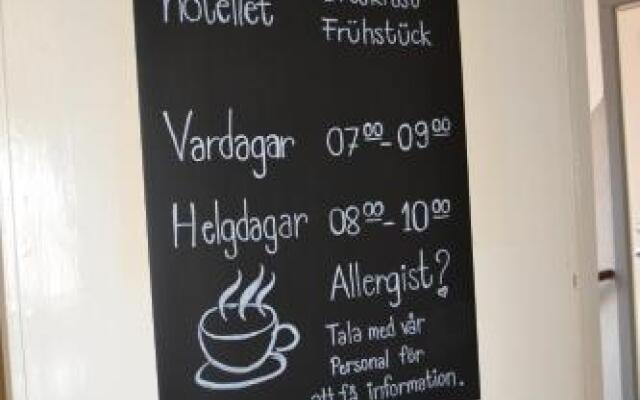 Hotellet
Breakfast
Frühstück
Vardagar 07⁰⁰-09⁰⁰
Helgdagar 08⁰⁰-10⁰⁰
Allergist?
Tala med vår
Personal för
att få information.